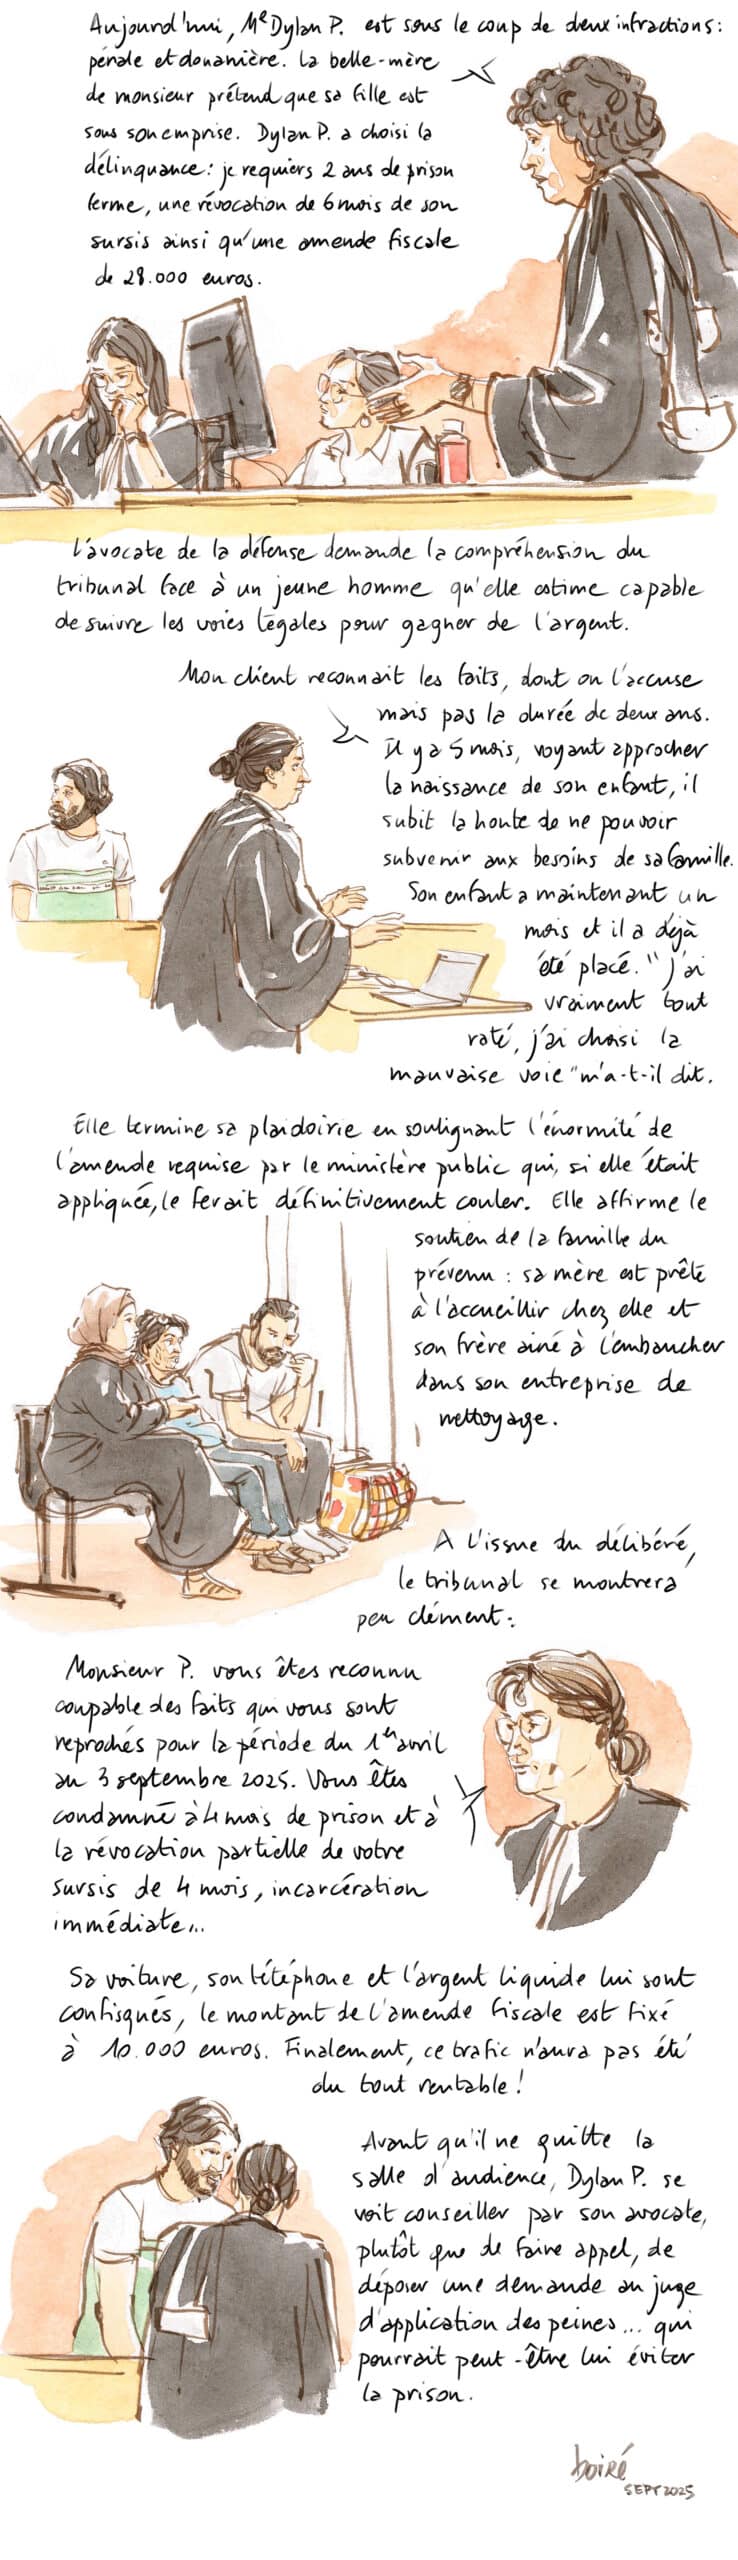 Aujourd'hui, Mr Dylan P. est sous le coup de deux infractions :
pénale et douanière. La belle-mère
de monsieur prétend que sa fille est
sous son emprise. Dylan P. a choisi la
délinquance : je requiers 2 ans de prison
ferme, une révocation de 6 mois de son
sursis ainsi qu'une amende fiscale
de 28.000 euros.
L'avocate de la défense demande la compréhension du
tribunal face à un jeune homme qu'elle estime capable
de suivre les voies légales pour gagner de l'argent.
Mon client reconnait les faits, dont on l'accuse
mais pas la durée de deux ans.
Il y a 5 mois, voyant approcher
la naissance de son enfant, il
subit la honte de ne pouvoir
subvenir aux besoins de sa famille.
Son enfant a maintenant un
mois et il a déjà
été placé. "J'ai
vraiment tout
raté, j'ai choisi la
mauvaise voie" m'a-t-il dit.
Elle termine sa plaidoirie en soulignant l'énormité de
l'amende requise par le ministère public qui, si elle était
appliquée, le ferait définitivement couler. Elle affirme le
soutien de la famille du
prévenu : sa mère est prête
à l'accueillir chez elle et
son frère ainé à l'embaucher
dans son entreprise de
nettoyage.
A l'issue du délibéré,
le tribunal se montrera
peu clément :
Monsieur P. vous êtes reconnu
coupable des faits qui vous sont
reprochés pour la période du 1er avril
au 3 septembre 2025. Vous êtes
condamné à 4 mois de prison et à
la révocation partielle de votre
sursis de 4 mois, incarcération
immédiate...
Sa voiture, son téléphone et l'argent liquide lui sont
confisqués, le montant de l'amende fiscale est fixé
à 10.000 euros. Finalement, ce trafic n'aura pas été
du tout rentable !
Avant qu'il ne quitte la
salle d'audience, Dylan P. se
voit conseiller par son avocate,
plutôt que de faire appel, de
déposer une demande au juge
d'application des peines... qui
pourrait peut-être lui éviter
la prison.
boiré
SEPT 2025